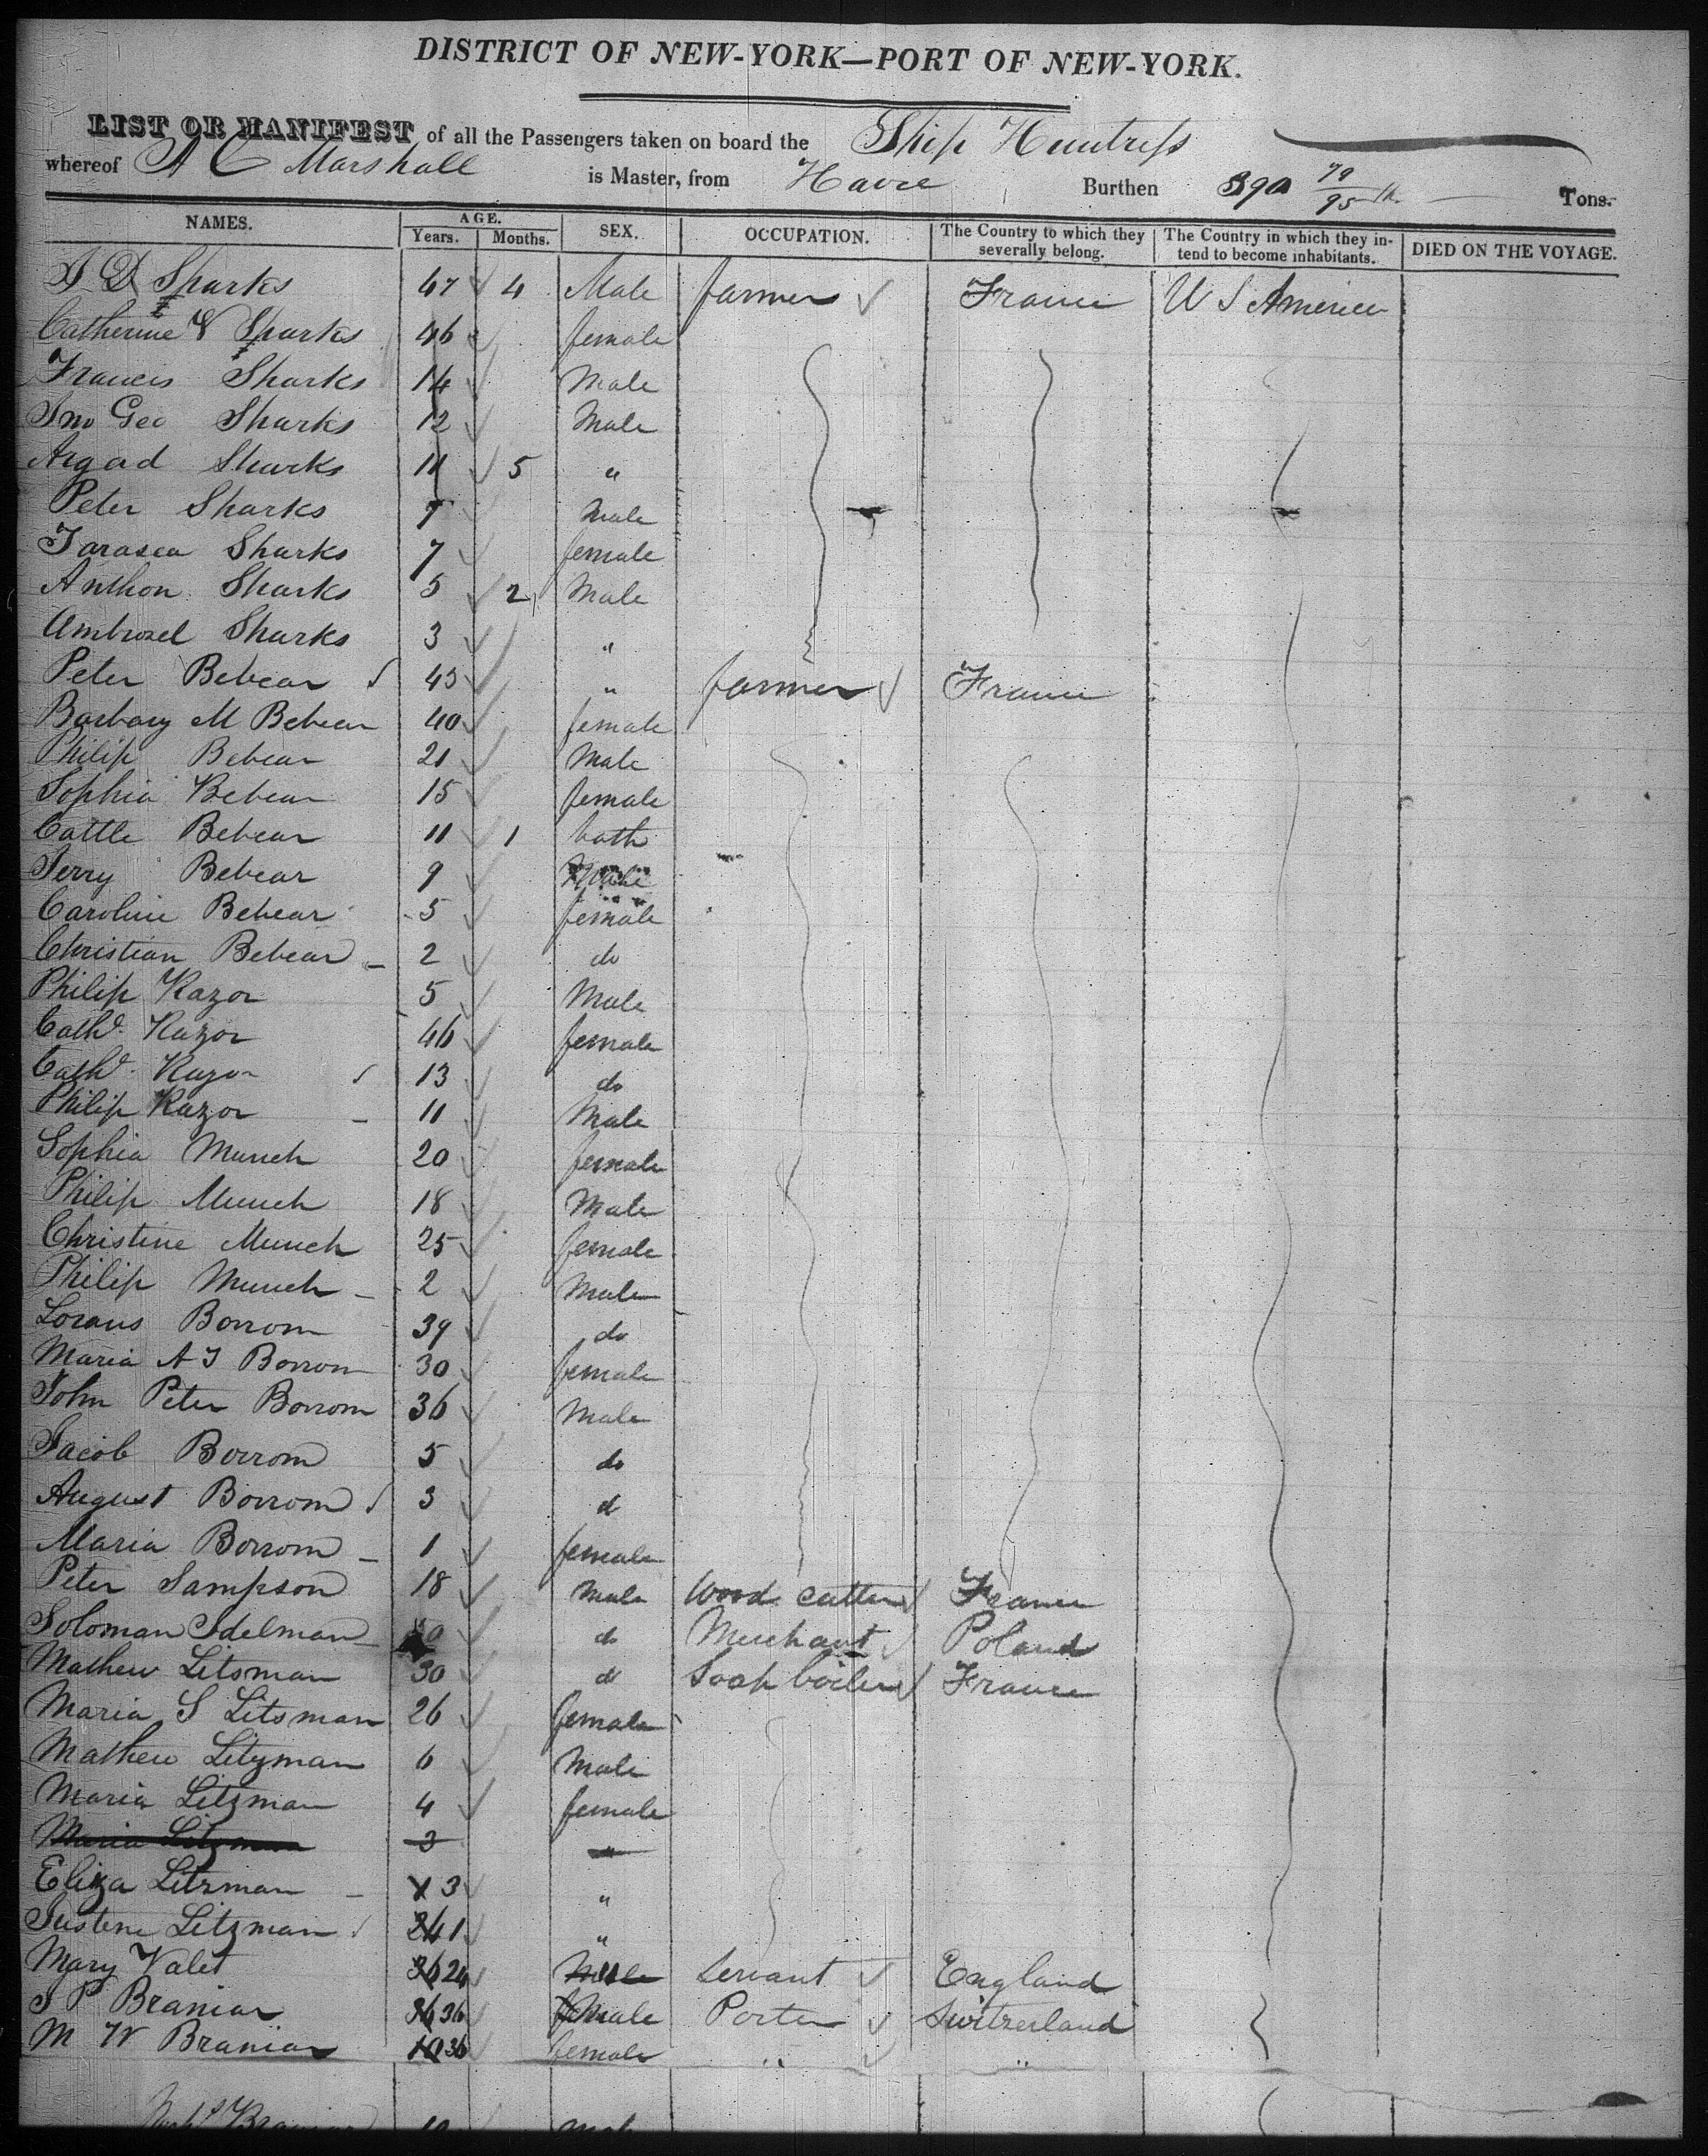 DISTRICT OF NEW-YORK—PORT OF NEW-YORK.
LIST OR MANIFEST of all the Passengers taken on board the Ship Huntress
whereof A C Marshall is Master, from Havre Burthen 390 79/95 Tons.
NAMES. AGE. Years. Months. SEX. OCCUPATION. The Country to which they severally belong. The Country in which they intend to become inhabitants. DIED ON THE VOYAGE.
Sharks 47 4 Male farmer France U S America
Catherine V Sharks 46 female
Francis Sharks 14 Male
Jno Geo Sharks 12 Male
Argad Sharks 11 5 "
Peter Sharks 7 Male
Tarasea Sharks 7 female
Anthon Sharks 5 2 Male
Ambrosel Sharks 3 "
Peter Bebear 45 " farmer France
Barbary M Bebear 40 female
Philip Bebear 21 Male
Sophia Bebear 15 female
Cattle Bebear 11 1 both
Jerry Bebear 9 Male
Caroline Bebear 5 female
Christian Bebear 2 do
Philip Razor 5 Male
Cathe. Razor 46 female
Cathe. Razor 13 do
Philip Razor 11 Male
Sophia Munch 20 female
Philip Munch 18 Male
Christine Munch 25 female
Philip Munch 2 Male
Loraus Borrom 39 do
Maria A T Borrom 30 female
John Peter Borrom 36 Male
Jacob Borrom 5 do
August Borrom 3 d
Maria Borrom 1 female
Peter Sampson 18 Male Wood cutter France
Soloman Idelman do Merchant Poland
Mathew Litsman 30 d Soap boiler France
Maria S Litsman 26 female
Mathew Litzman 6 Male
Maria Litzman 4 female
Maria Litzman 3 "
Eliza Litzman 3 "
Justene Litzman 1 "
Mary Valet 24 Male Servant England
J P Braniar 36 Male Porter Switzerland
M W Braniar 36 female " "
Braniar 10 Male